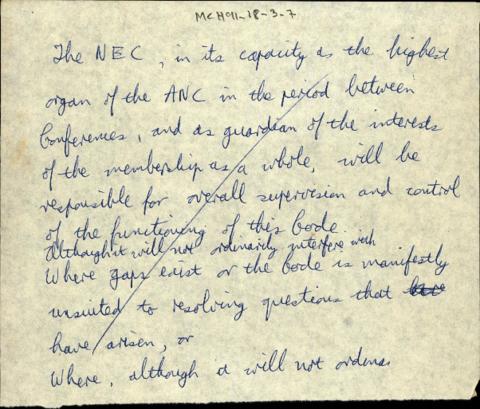 MCH91-18-3-7
The NEC, in its capacity as the highest
organ of the ANC in the period between
Conferences, and as guardian of the interests
of the membership as a whole, will be
responsible for overall supervision and control
of the functioning of this bode.
Although it will not ordinarily interfere with
Where gaps exist or the bode is manifestly
unsuited to resolving questions that
have arisen, or
Where, although it will not ordina